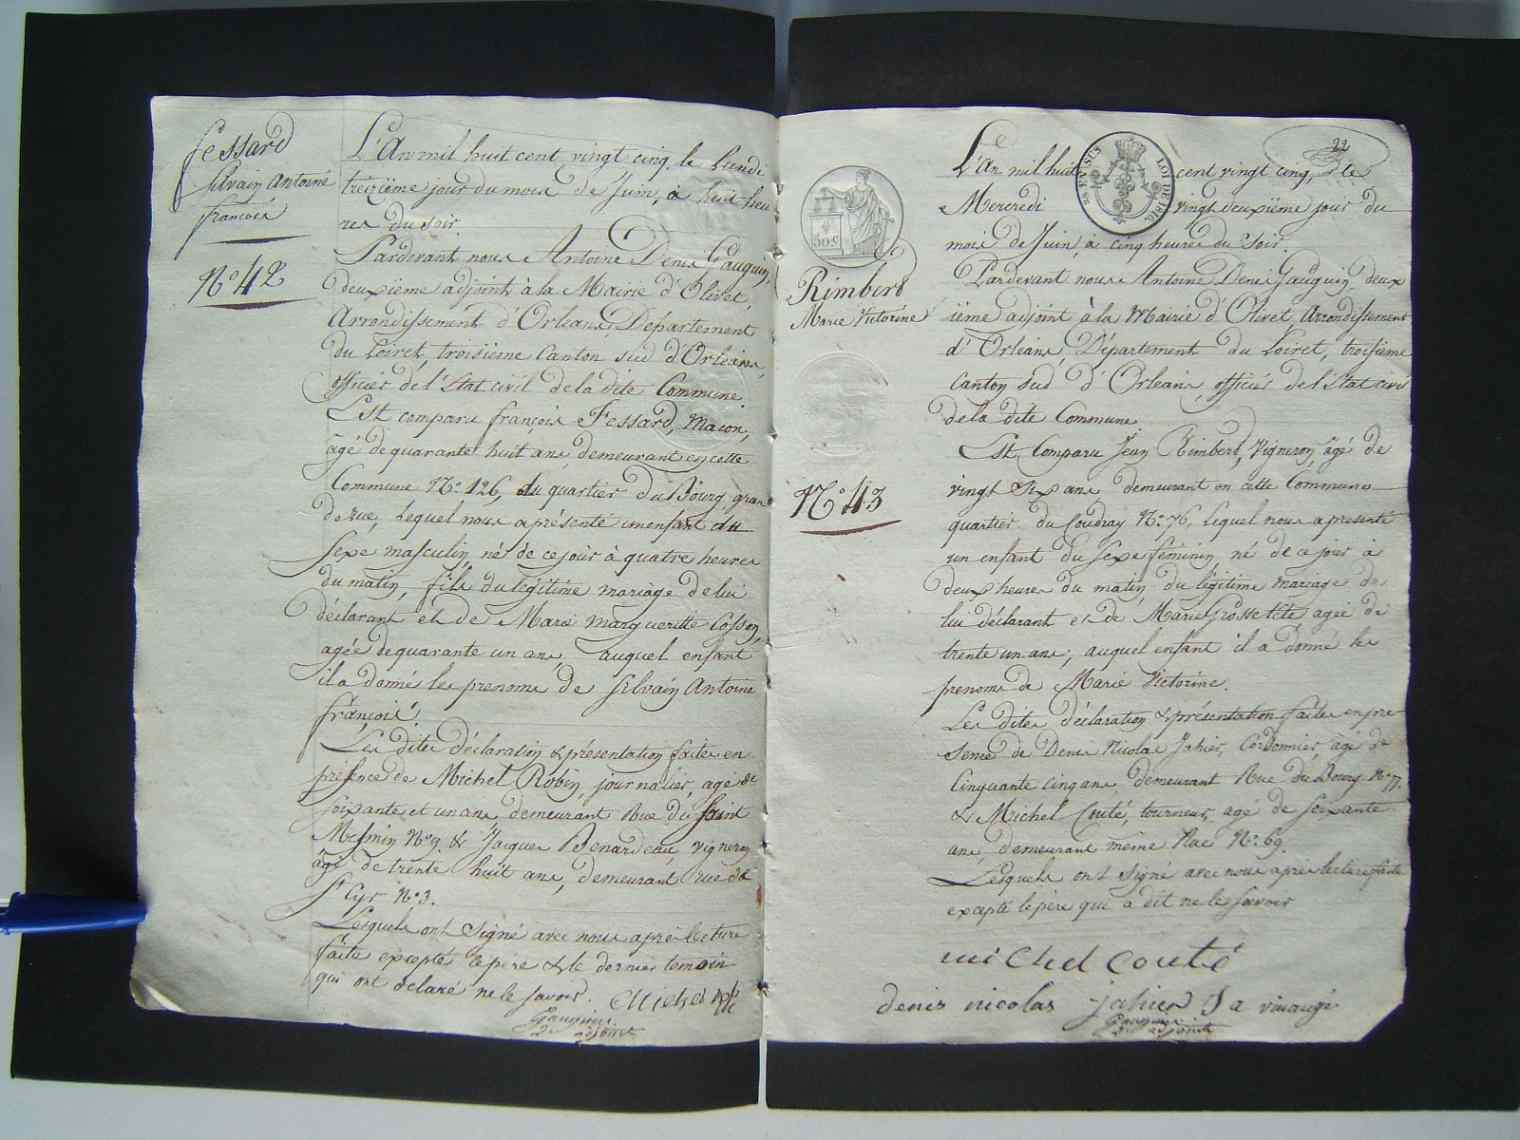 Fessard
Silvain Antoine
françois
N.° 42
L'An mil huit cent vingt cinq le Lundi
treizième jour du mois de Juin, à huit heu
res du soir.
Pardevant nous Antoine Denis Gauguin,
deuxième adjoint à la Mairie d'Olivet,
Arrondissement d'Orleans, Département
du Loiret, troisième Canton sud d'Orleans,
officier de l'État civil de la dite Commune.
Est comparu françois Fessard, Macon,
âgé de quarante huit ans, demeurant en cette
Commune N.° 126, du quartier du Bourg, grande
de rue, Lequel nous a présenté un enfant du
Sexe masculin, né de ce jour à quatre heures
du matin, fils du légitime mariage de lui
déclarant et de Marie Marguerite Cosson,
agée de quarante un ans, auquel enfant
il a donné les prenoms de Silvain Antoine
françois.
Les dites déclaration & présentation faites en
présence de Michel Robin, journalier, agé de
soixante et un ans demeurant Rue du Saint
Mesmin N.° 9. & Jacques Benardeau, vigneron
âgé de trente huit ans, demeurant rue de
St Cyr N.° 3.
Lesquels ont Signé avec nous après lecture
faite excepté le père & le dernier temoin
qui ont déclaré ne le savoir. Michel
Gauguin
adjoint
22
Rimbert
Marie Victorine
N.° 43
L'An mil huit cent vingt cinq, le
Mercredi vingt deuxième jour du
mois de Juin, à cinq heures du Soir.
Pardevant nous Antoine Denis Gauguin, deux
ième adjoint à la Mairie d'Olivet, Arrondissement
d'Orleans, Département du Loiret, troisième
Canton sud d'Orleans, officier de l'État civil
de la dite Commune.
Est Comparu Jean Rimbert, Vigneron, âgé de
vingt Six ans demeurant en cette Commune
quartier du Coudray N.° 76, Lequel nous a presenté
un enfant du Sexe féminin, né de ce jour à
deux heures du matin, du légitime mariage de
lui déclarant et de Marie Grossetête agée de
trente un ans; auquel enfant il a donné les
prenoms de Marie Victorine.
Les dites déclaration & présentation faites en pré
sence de Denis Nicolas Jahier, Cordonnier, agé de
Cinquante cinq ans, demeurant Rue du Bourg N.° 77.
& Michel Couté, tourneur, agé de Soixante
ans, demeurant même Rue N.° 69.
Lesquels ont Signé avec nous après lecture faite
excepté le père qui a dit ne le Savoir
michel couté
denis nicolas jahier
Gauguin
adjoint